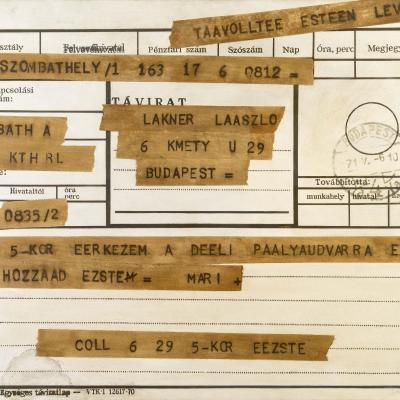 TAAVOLLTEE ESTEEN LEV
sztály Felvevőhivatal Pénztári szám Szószám Nap Óra, perc Megjegy
SZOMBATHELY/1 163 17 6 0812 =
pcsolási
ám:
TÁVIRAT
LAKNER LAASZLO
BATH A
6 KMETY U 29
KTHRL
BUDAPEST =
BUDAPEST
Hivataltól óra perc
Továbbította:
munkahely hivatal
0835/2
5-KOR EERKEZEM A DEELI PAALYAUDVARRA E
HOZZAAD EZSTE = MARI +
COLL 6 29 5-KOR EEZSTE
Egységes távirati lap — VTK-1 12617-70